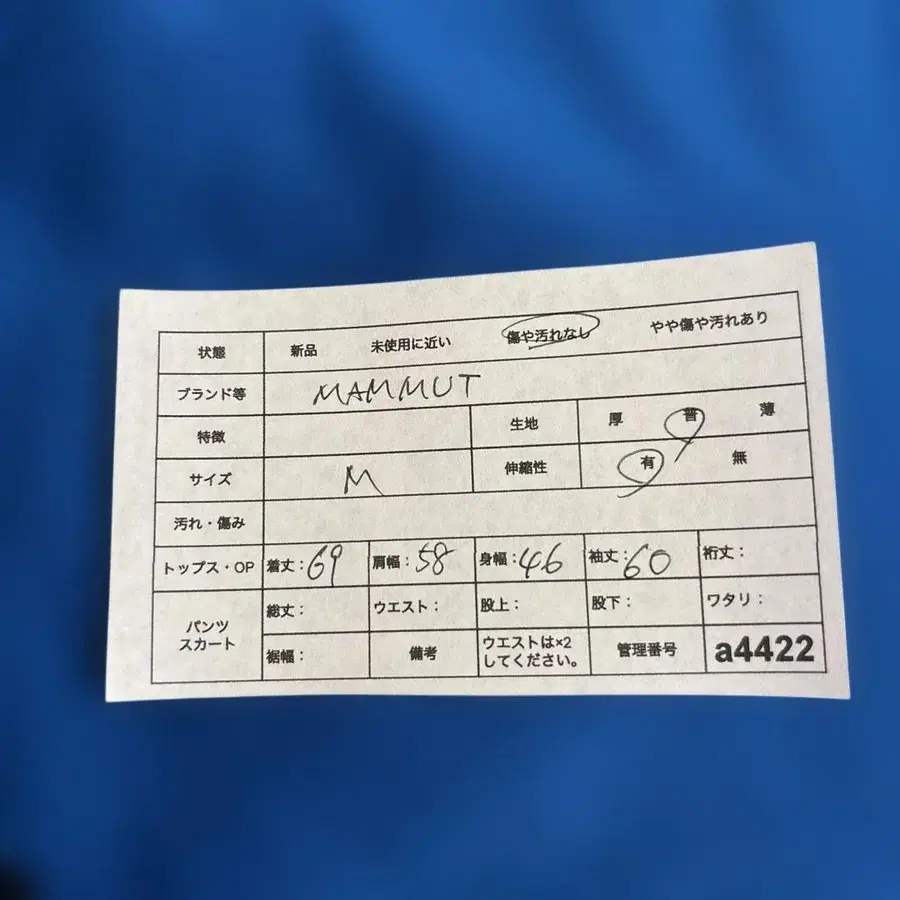 状態 新品 未使用に近い 傷や汚れなし やや傷や汚れあり
ブランド等 MAMMUT
特徴 生地 厚 普 薄
サイズ M 伸縮性 有 無
汚れ・傷み
トップス・OP 着丈：69 肩幅：58 身幅：46 袖丈：60 裄丈：
パンツ
スカート
総丈： ウエスト： 股上： 股下： ワタリ：
裾幅： 備考 ウエストは×2
してください。 管理番号 a4422